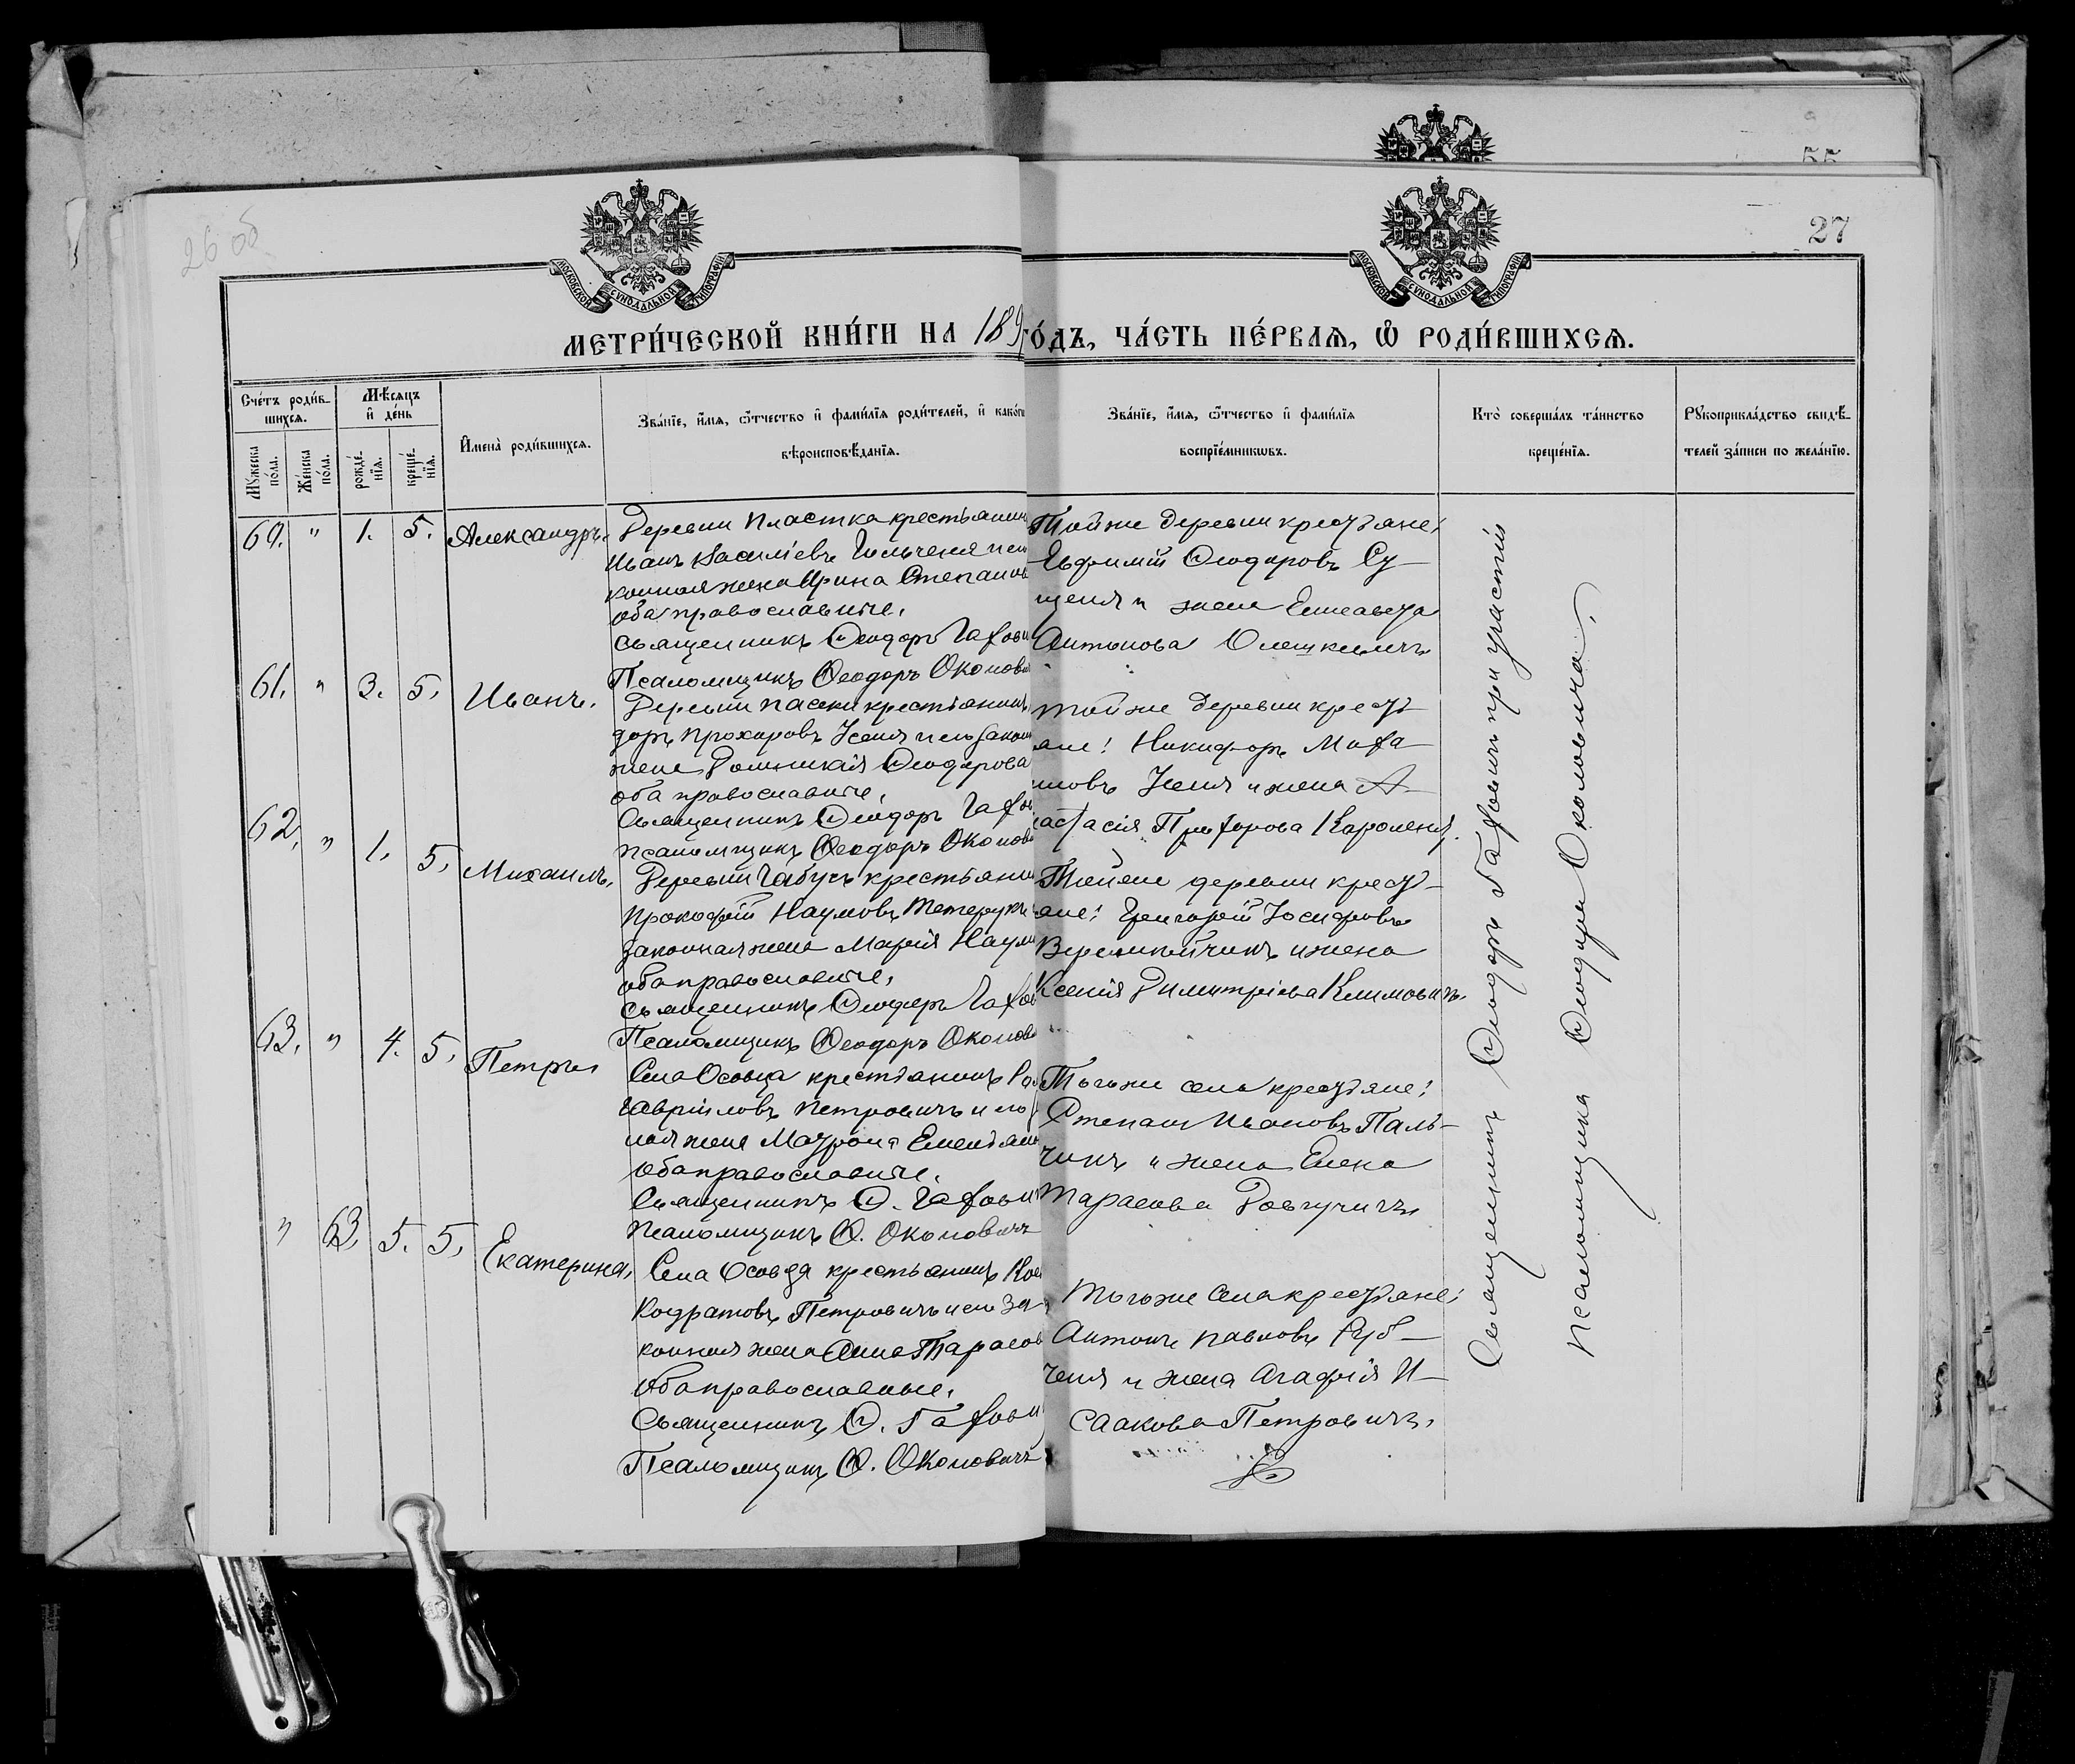 26 об
27
55
МОСКОВСКОЙ СУНОДАЛЬНОЙ ТИПОГРАФІИ
МОСКОВСКОЙ СУНОДАЛЬНОЙ ТИПОГРАФІИ
МЕТРИ́ЧЕСКОЙ КНИ́ГИ НА 189
ГО́ДЪ, ЧА́СТЬ ПЕ́РВАѦ, Ѽ РОДИ́ВШИХСѦ.
Сче́тъ роди́в-
шихся.
Мѣ́сяцъ
и де́нь
Му́жеска по́ла.
Же́нска по́ла.
рожде́-
нїя.
креще́-
нїя.
Имена̀ роди́вшихся.
Зва́нїе, и́мя, ѻ́тчество и фами́лїя роди́телей, и како́гѡ
вѣроисповѣ́данїя.
Зва́нїе, и́мя, ѻ́тчество и фами́лїя
воспрїе́мникѡвъ.
Кто̀ соверша́лъ та́инство
креще́нїя.
Рукоприкла́дство свидѣ́-
телей за́писи по жела́нїю.
60. " 1. 5. Александръ.
Деревни Пластка крестьянин
Иванъ Василіевъ
конная жена Ирина Степанов
оба православные.
Священникъ Ѳеодоръ Гахови
Псаломщикъ Ѳеодоръ Околови
Той же деревни крестьяне:
Евфимій Ѳеодоровъ Су-
щеня и жена Елисавета
Антонова Олешкевичъ
61. " 3. 5. Иванъ.
Деревни Пасеки крестьянинъ
доръ Прохоровъ Усеня и его закон
жена Домникія Ѳеодорова
оба православные.
Священникъ Ѳеодоръ Гахов
Псаломщикъ Ѳеодоръ Околов
Той же деревни крест-
яне: Никифоръ
Усеня и жена А-
настасія Кароленя.
62. " 1. 5. Михаилъ.
Деревни Габусъ крестьянин
Прокофій Наумовъ Тетерукъ
законная жена Марія Наум
оба православные.
Священникъ Ѳеодоръ Гахов
Псаломщикъ Ѳеодоръ Околов
Той же деревни крест-
яне: Григорій Іосифовъ
Веремейчикъ и жена
Ксенія Димитріева Климовичъ.
63. " 4. 5. Петръ.
Села Осовца крестьянинъ
Гавріиловъ Петровичъ и его
ная жена Матрона Емельян
оба православные.
Священникъ Ѳ. Гахович
Псаломщикъ Ѳ. Околовичъ
Того же села крестьяне:
Степанъ Ивановъ Паль-
чикъ и жена Елена
Тарасова Довгучичъ
" 63. 5. 5. Екатерина.
Села Осовца крестьянинъ
Кодратовъ Петровичъ и его за-
конная жена Анна Тарасов
оба православные.
Священникъ Ѳ. Гахови
Псаломщикъ Ѳ. Околовичъ
Того же села крестьяне:
Антонъ Павловъ Руб-
ченя и жена Агафія И-
саакова Петровичъ.
Священникъ Ѳеодоръ Гаховичъ при участіи
Псаломщика Ѳеодора Околовича.